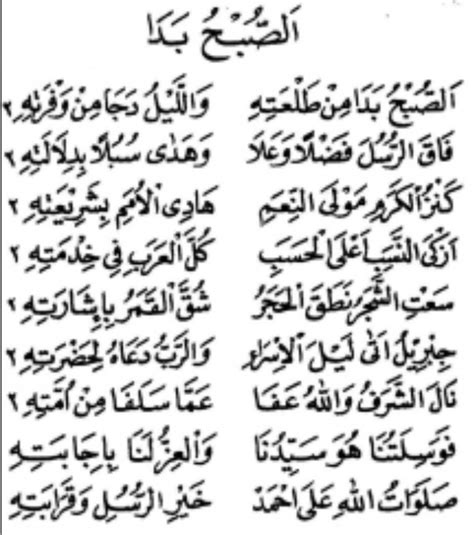 اَلصُّبْحُ بَدَا
اَلصُّبْحُ بَدَا مِنْ طَلْعَتِهِ وَاللَّيْلُ دَجَا مِنْ وَفْرَتِهِ ٢
فَاقَ الرُّسُلَ فَضْلًا وَعَلَا وَهَدٰى سُبُلًا بِدِلَالَتِهِ ٢
كَنْزُ الْكَرَمِ مَوْلَى النِّعَمِ هَادِى الْاُمَمِ بِشَرِيْعَتِهِ ٢
اَزْكَى النَّسَبِ اَعْلَى الْحَسَبِ كُلُّ الْعَرَبِ فِي خِدْمَتِهِ ٢
سَعَتِ الشَّجَرُ نَطَقَ الْحَجَرُ شُقَّ الْقَمَرُ بِاِشَارَتِهِ ٢
جِبْرِيْلُ اَتٰى لَيْلَ الْاِسْرَاءِ وَالرَّبُّ دَعَاهُ لِحَضْرَتِهِ ٢
نَالَ الشَّرَفُ وَاللهُ عَفَا عَمَّا سَلَفَا مِنْ اُمَّتِهِ ٢
فَوَسِلَتُنَا هُوَ سَيِّدُنَا وَالْعِزُّ لَنَا بِاِجَابَتِهِ
صَلَوَاتُ اللهِ عَلَى اَحْمَدْ خَيْرِ الرُّسُلِ وَقَرَابَتِهِ